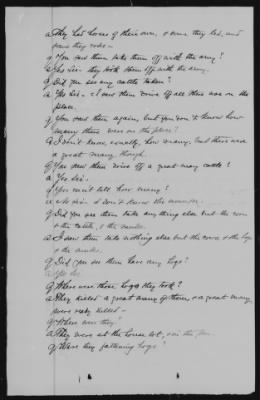 a They had horses of their own, & some they led, and
some they rode –
q You saw them take them off with the army?
a Yes Sir – they took them off with the army.
q Did you see any cattle taken?
a Yes Sir – I saw them drive off all there was on the
place.
q You saw them again, but you don't know how
many there were on the place?
a I don't know, exactly, how many, but there was
a great many, though.
q You saw them drive off a great many cattle?
a Yes Sir.
q You can't tell how many?
a No Sir – I don't know the number.
q Did you see them take anything else but the corn
& the cattle, & the mules.
a I saw them take nothing else but the corn & the hogs
& the mules.
q Did you see them have any hogs?
a Yes Sir
q Where were those hogs they took?
a They killed a great many of them, & a great many
were killed –
q Where were they?
a They were at the house lot, in the
q Were they fattening hogs?